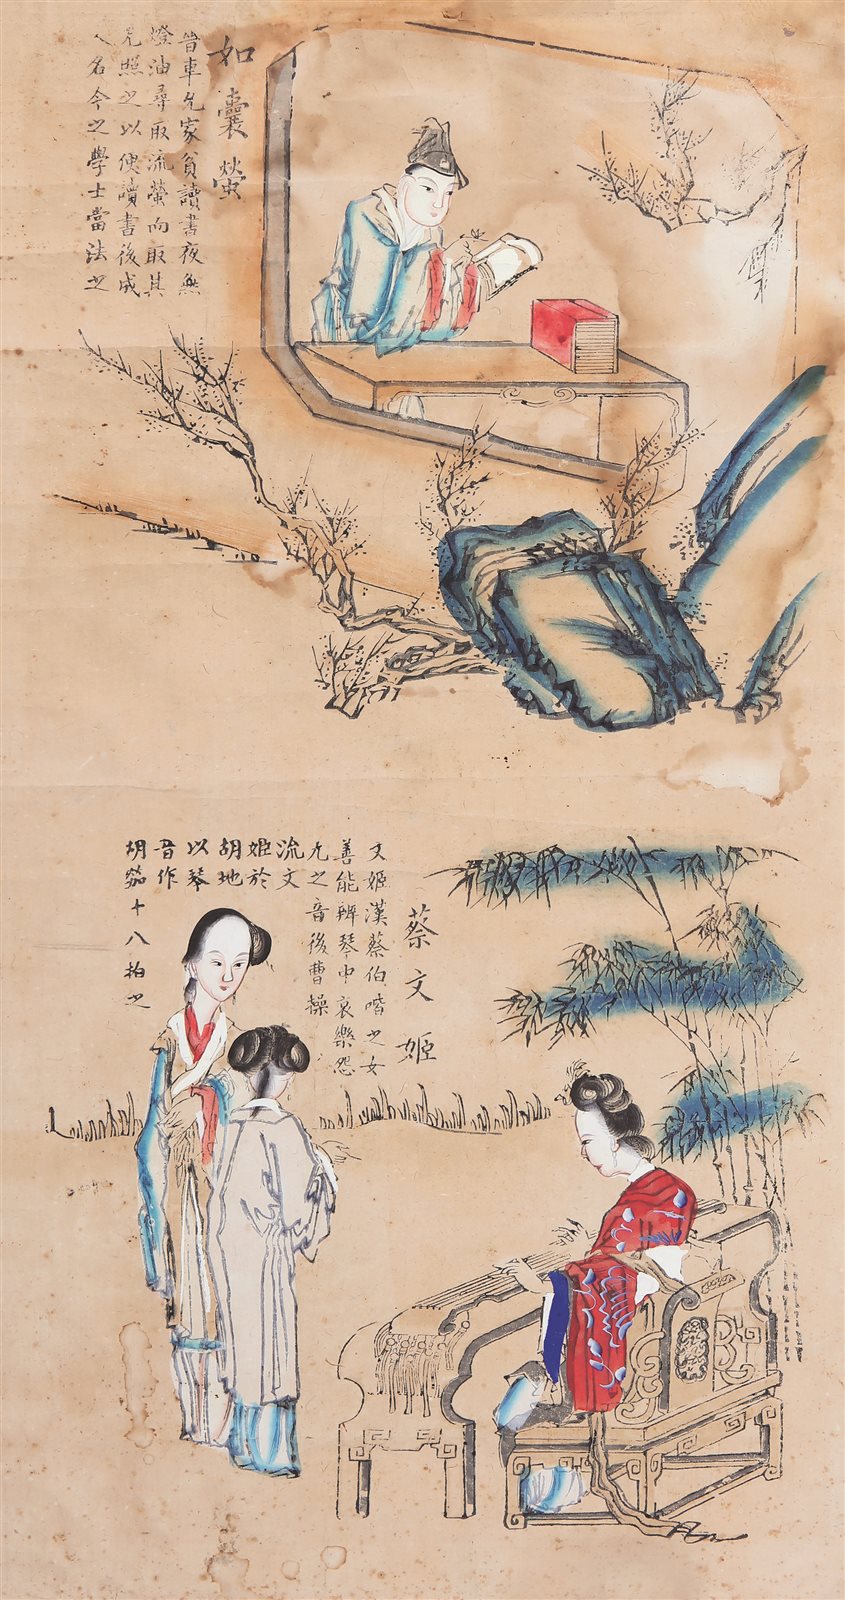 如囊螢
昔車允家貧讀書夜無
燈油尋取流螢而取其
光照之以便讀書後成
名今之學士當法之
蔡文姬
文姬漢蔡伯喈之女
善能辨琴中哀樂怨
之音後曹操
流文
姬於
胡地
以琴
音作
胡笳十八拍之